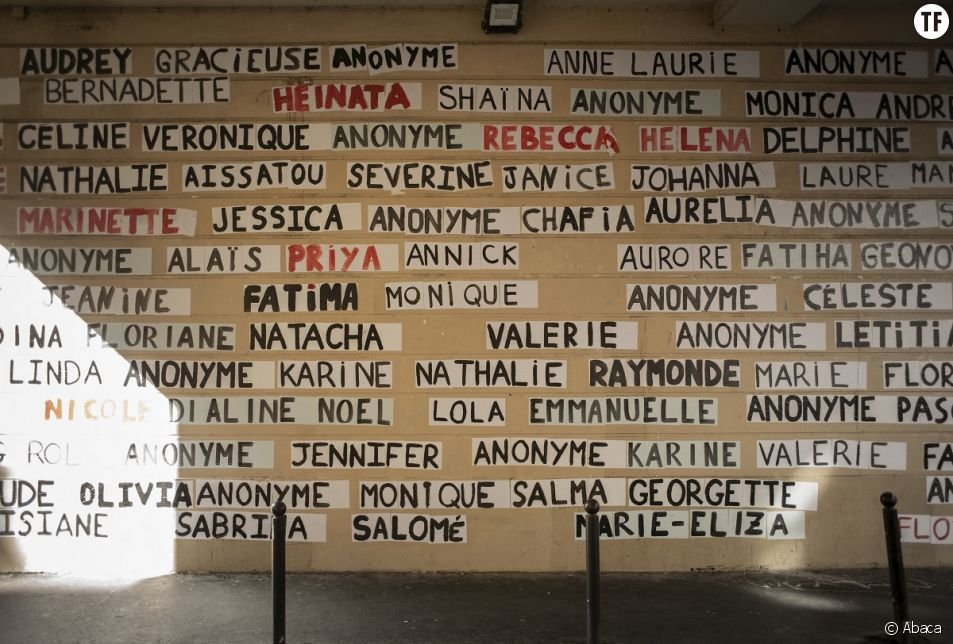 TF
AUDREY GRACIEUSE ANONYME ANNE LAURIE ANONYME
BERNADETTE HEINATA SHAÏNA ANONYME MONICA ANDRE
CELINE VERONIQUE ANONYME REBECCA HELENA DELPHINE
NATHALIE AISSATOU SEVERINE JANICE JOHANNA LAURE MAR
MARINETTE JESSICA ANONYME CHAFIA AURELIA ANONYME S
ANONYME ALAÏS PRIYA ANNICK AURORE FATIHA
JEANINE FATIMA MONIQUE ANONYME CÉLESTE
DINA FLORIANE NATACHA VALERIE ANONYME LETITIA
LINDA ANONYME KARINE NATHALIE RAYMONDE MARIE FLOR
NICOLE DIALINE NOEL LOLA EMMANUELLE ANONYME PASC
ROL ANONYME JENNIFER ANONYME KARINE VALERIE FA
UDE OLIVIA ANONYME MONIQUE SALMA GEORGETTE AN
ISIANE SABRINA SALOMÉ MARIE-ELIZA FLO
© Abaca